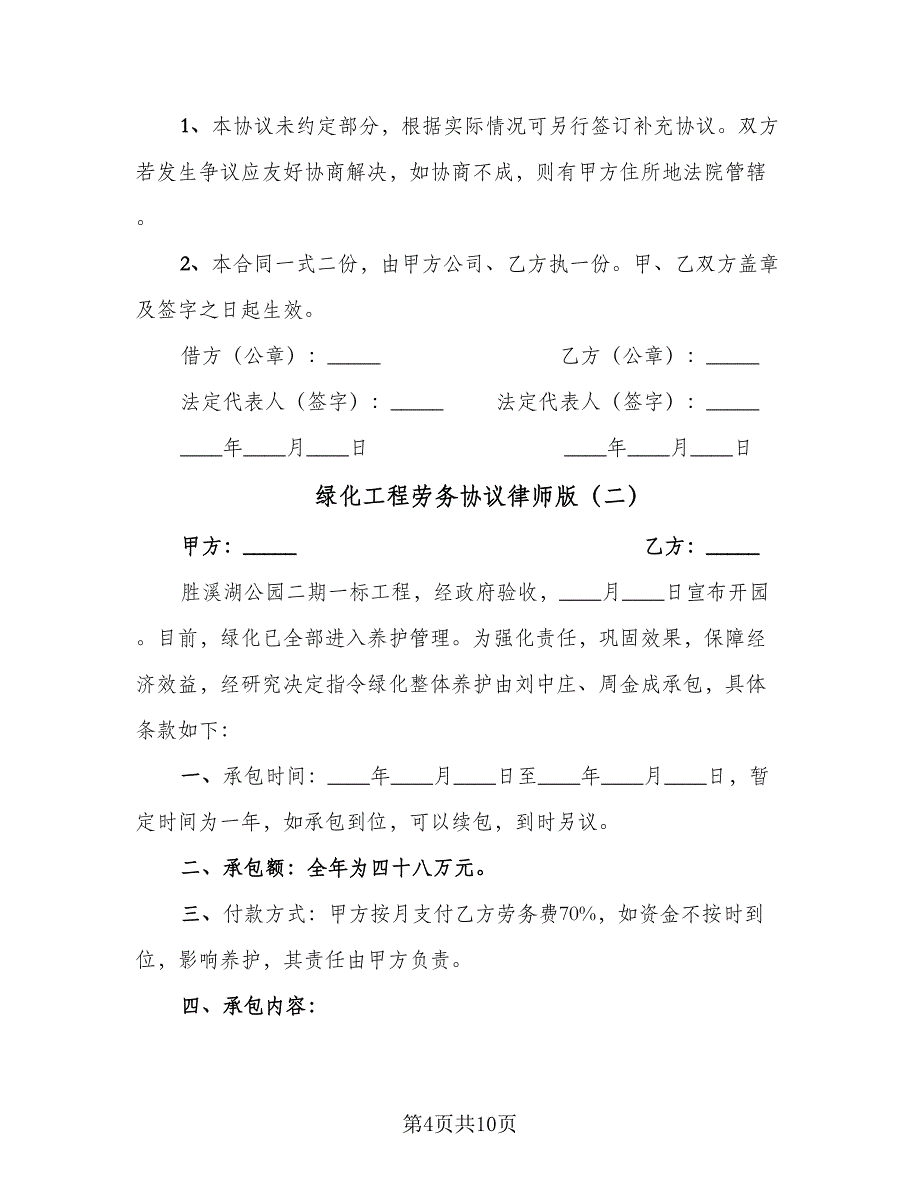 1、本协议未约定部分，根据实际情况可另行签订补充协议。双方
若发生争议应友好协商解决，如协商不成，则有甲方住所地法院管辖
。
2、本合同一式二份，由甲方公司、乙方执一份。甲、乙双方盖章
及签字之日起生效。
借方（公章）：_____ 乙方（公章）：_____
法定代表人（签字）：_____ 法定代表人（签字）：_____
____年____月____日 ____年____月____日
绿化工程劳务协议律师版（二）
甲方：_____ 乙方：_____
胜溪湖公园二期一标工程，经政府验收，____月____日宣布开园
。目前，绿化已全部进入养护管理。为强化责任，巩固效果，保障经
济效益，经研究决定指令绿化整体养护由刘中庄、周金成承包，具体
条款如下：
一、承包时间：____年____月____日至____年____月____日，暂
定时间为一年，如承包到位，可以续包，到时另议。
二、承包额：全年为四十八万元。
三、付款方式：甲方按月支付乙方劳务费70%，如资金不按时到
位，影响养护，其责任由甲方负责。
四、承包内容：
第4页共10页